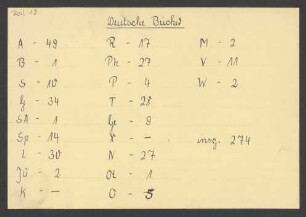 Deutsche Bücher
A - 49
B - 1
S - 10
G - 34
SA - 1
Sp - 14
L - 30
Jü - 2
K - —
R - 17
Ph - 27
P - 4
T - 28
Ge - 9
X - —
N - 27
Ot - 1
O - 5
M - 2
V - 11
W - 2
insg. 274